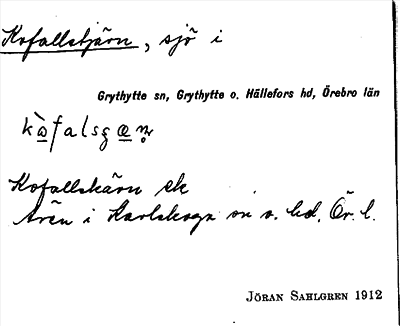 Kofallstjärn, sjö i
Grythytte sn, Grythytte o. Hällefors hd, Örebro län
Kofallskärn ek
i Karlskoga sn o. hd, Ör. l.
JÖRAN SAHLGREN 1912